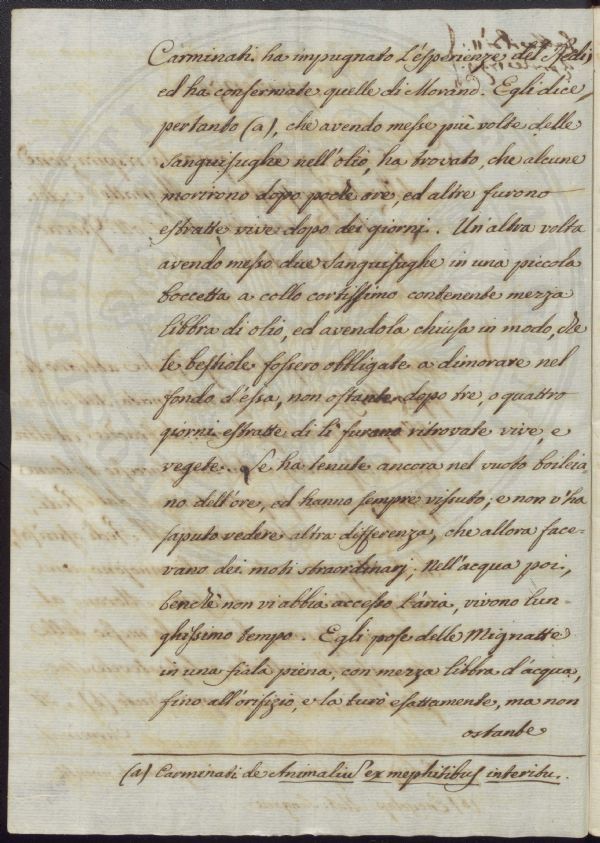 Carminati ha impugnato l'esperienze del Redi,
ed ha confermate quelle di Morand. Egli dice
pertanto (a), che avendo messe più volte delle
Sanguisughe nell'olio, ha trovato, che alcune
morirono dopo poche ore, ed altre furono
estratte vive dopo dei giorni. Un'altra volta
avendo messo due Sanguisughe in una piccola
boccetta a collo cortissimo contenente mezza
libbra di olio, ed avendola chiusa in modo, che
le bestiole fossero obbligate a dimorare nel
fondo d'essa, non ostante dopo tre, o quattro
giorni estratte di lì furano ritrovate vive, e
vegete. Le ha tenute ancora nel vuoto boileia
no dell'ore, ed hanno sempre vissuto; e non v'ha
saputo vedere altra differenza, che allora face-
vano dei moti straordinarj; Nell'acqua poi,
benchè non vi abbia accesso l'aria, vivono lun-
ghissimo tempo. Egli pose delle Mignatte
in una fiala piena, con mezza libbra d'acqua,
fino all'orifizio, e la turò esattamente, ma non
ostante
(a) Carminati de Animalium ex mephitibus interitu.